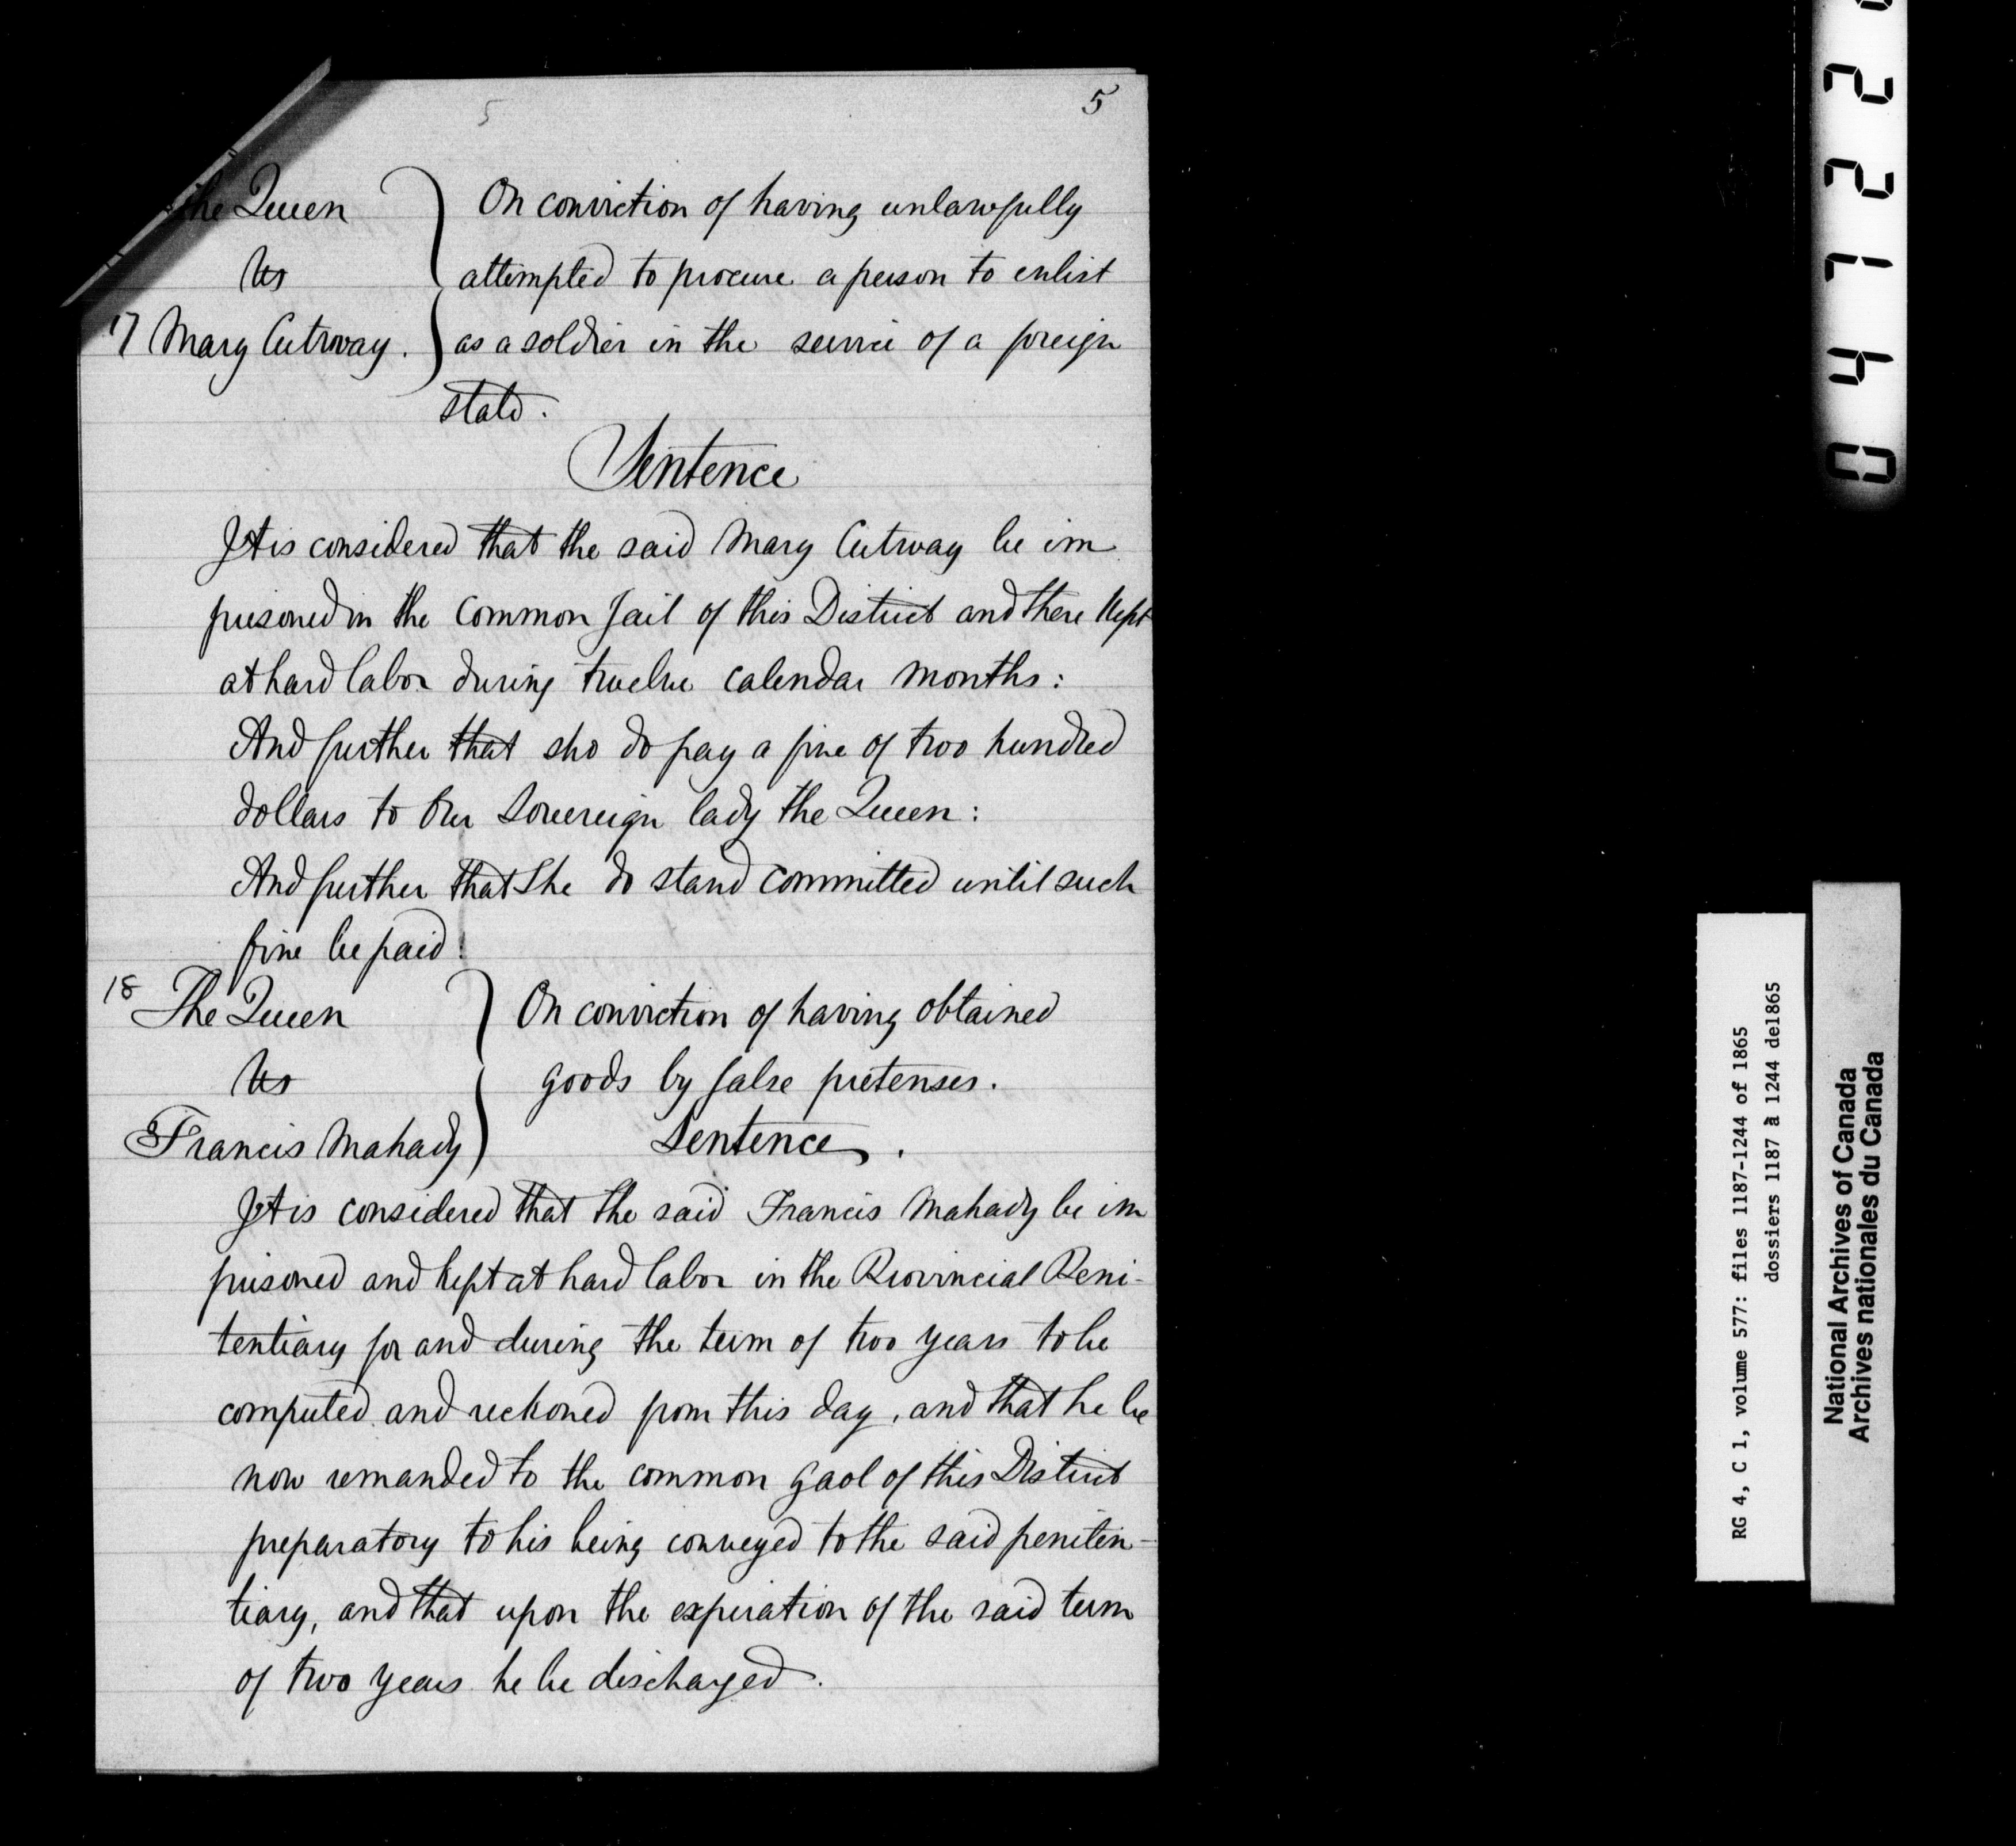 5
5
The Queen
vs
17 Mary Cutway.
On conviction of having unlawfully
attempted to procure a person to enlist
as a soldier in the service of a foreign
state.
Sentence
It is considered that the said Mary Cutway be im
prisoned in the Common Jail of this District and there kept
at hard labor during twelve calendar months:
And further that she do pay a fine of two hundred
dollars to Our Sovereign lady the Queen:
And further that She do stand committed until such
fine be paid:
18 The Queen
vs
Francis Mahady
On conviction of having obtained
goods by false pretenses.
Sentence.
It is considered that the said Francis Mahady be im
prisoned and kept at hard labor in the Provincial Peni-
tentiary for and during the term of two years to be
computed and reckoned from this day, and that he be
now remanded to the common gaol of this District
preparatory to his being conveyed to the said peniten-
tiary, and that upon the expiration of the said term
of two years he be discharged.
22140
RG 4, C 1, volume 577: files 1187-1244 of 1865
dossiers 1187 à 1244 de1865
National Archives of Canada
Archives nationales du Canada